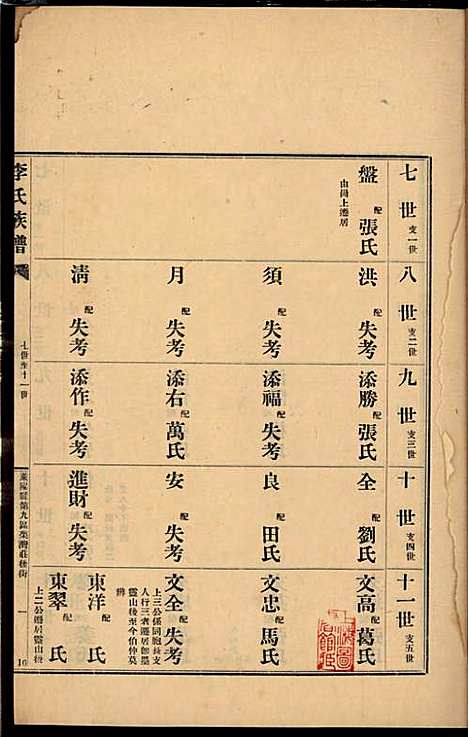 七世 支一世
盤 配張氏
由尚上遷居
八世 支二世
洪 配失考
須 配失考
月 配失考
清 配失考
九世 支三世
添勝 配張氏
添福 配失考
添右 配萬氏
添作 配失考
十世 支四世
全 配劉氏
良 配田氏
安 配失考
進財 配失考
十一世 支五世
文高 配葛氏
文忠 配馬氏
文全 配失考
上三公係同胞長支
人行三者遷居即墨
靈山後至今伯仲莫
辨
東洋 配 氏
東翠 配 氏
上二公遷居靈山後
李氏族譜
七世至十一世
萊陽縣第九區
莊後街
一
16